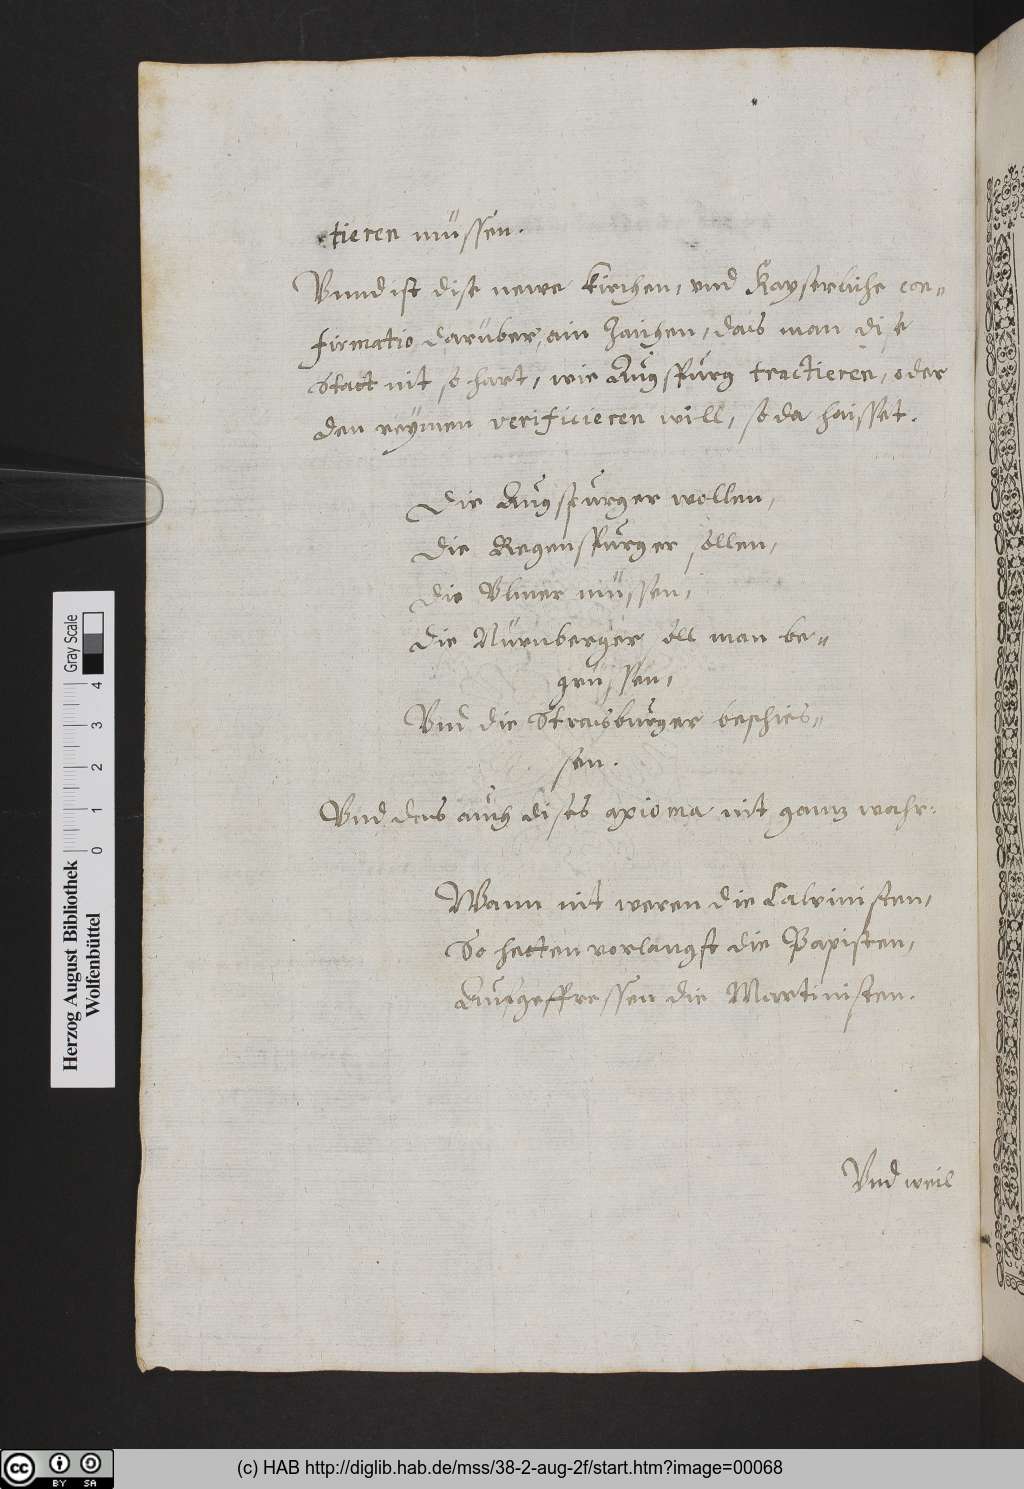 tieren müssen.
Vnnd ist dise newe Kirchen, vnd Kayserliche con-
firmatio darüber, ain zaichen, das man dise
Statt nit so hart, wie Augspurg tractieren, oder
den reymen verificieren will, so da haisset.
Die Augspurger wollen,
die Regenspurger sollen,
die Vlmer müssen,
die Nürnberger soll man be-
grüssen,
Vnd die Strasburger beschies-
sen.
Vnd das auch dises axioma nit gantz wahr:
Wann nit weren die Calvinisten,
So hetten vorlangst die Papisten,
Aufgeffressen die Martinisten.
Vnd weil
Herzog August Bibliothek
Wolfenbüttel
0 1 2 3 4
Gray Scale
CC BY SA
(c) HAB http://diglib.hab.de/mss/38-2-aug-2f/start.htm?image=00068